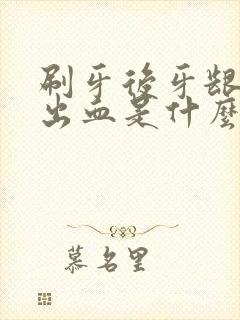 刷牙後牙龈
出血是什麼
慕名里